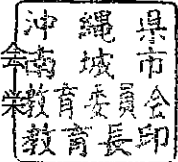 沖縄県
南城市
教育委員会
教育長印
会
栄